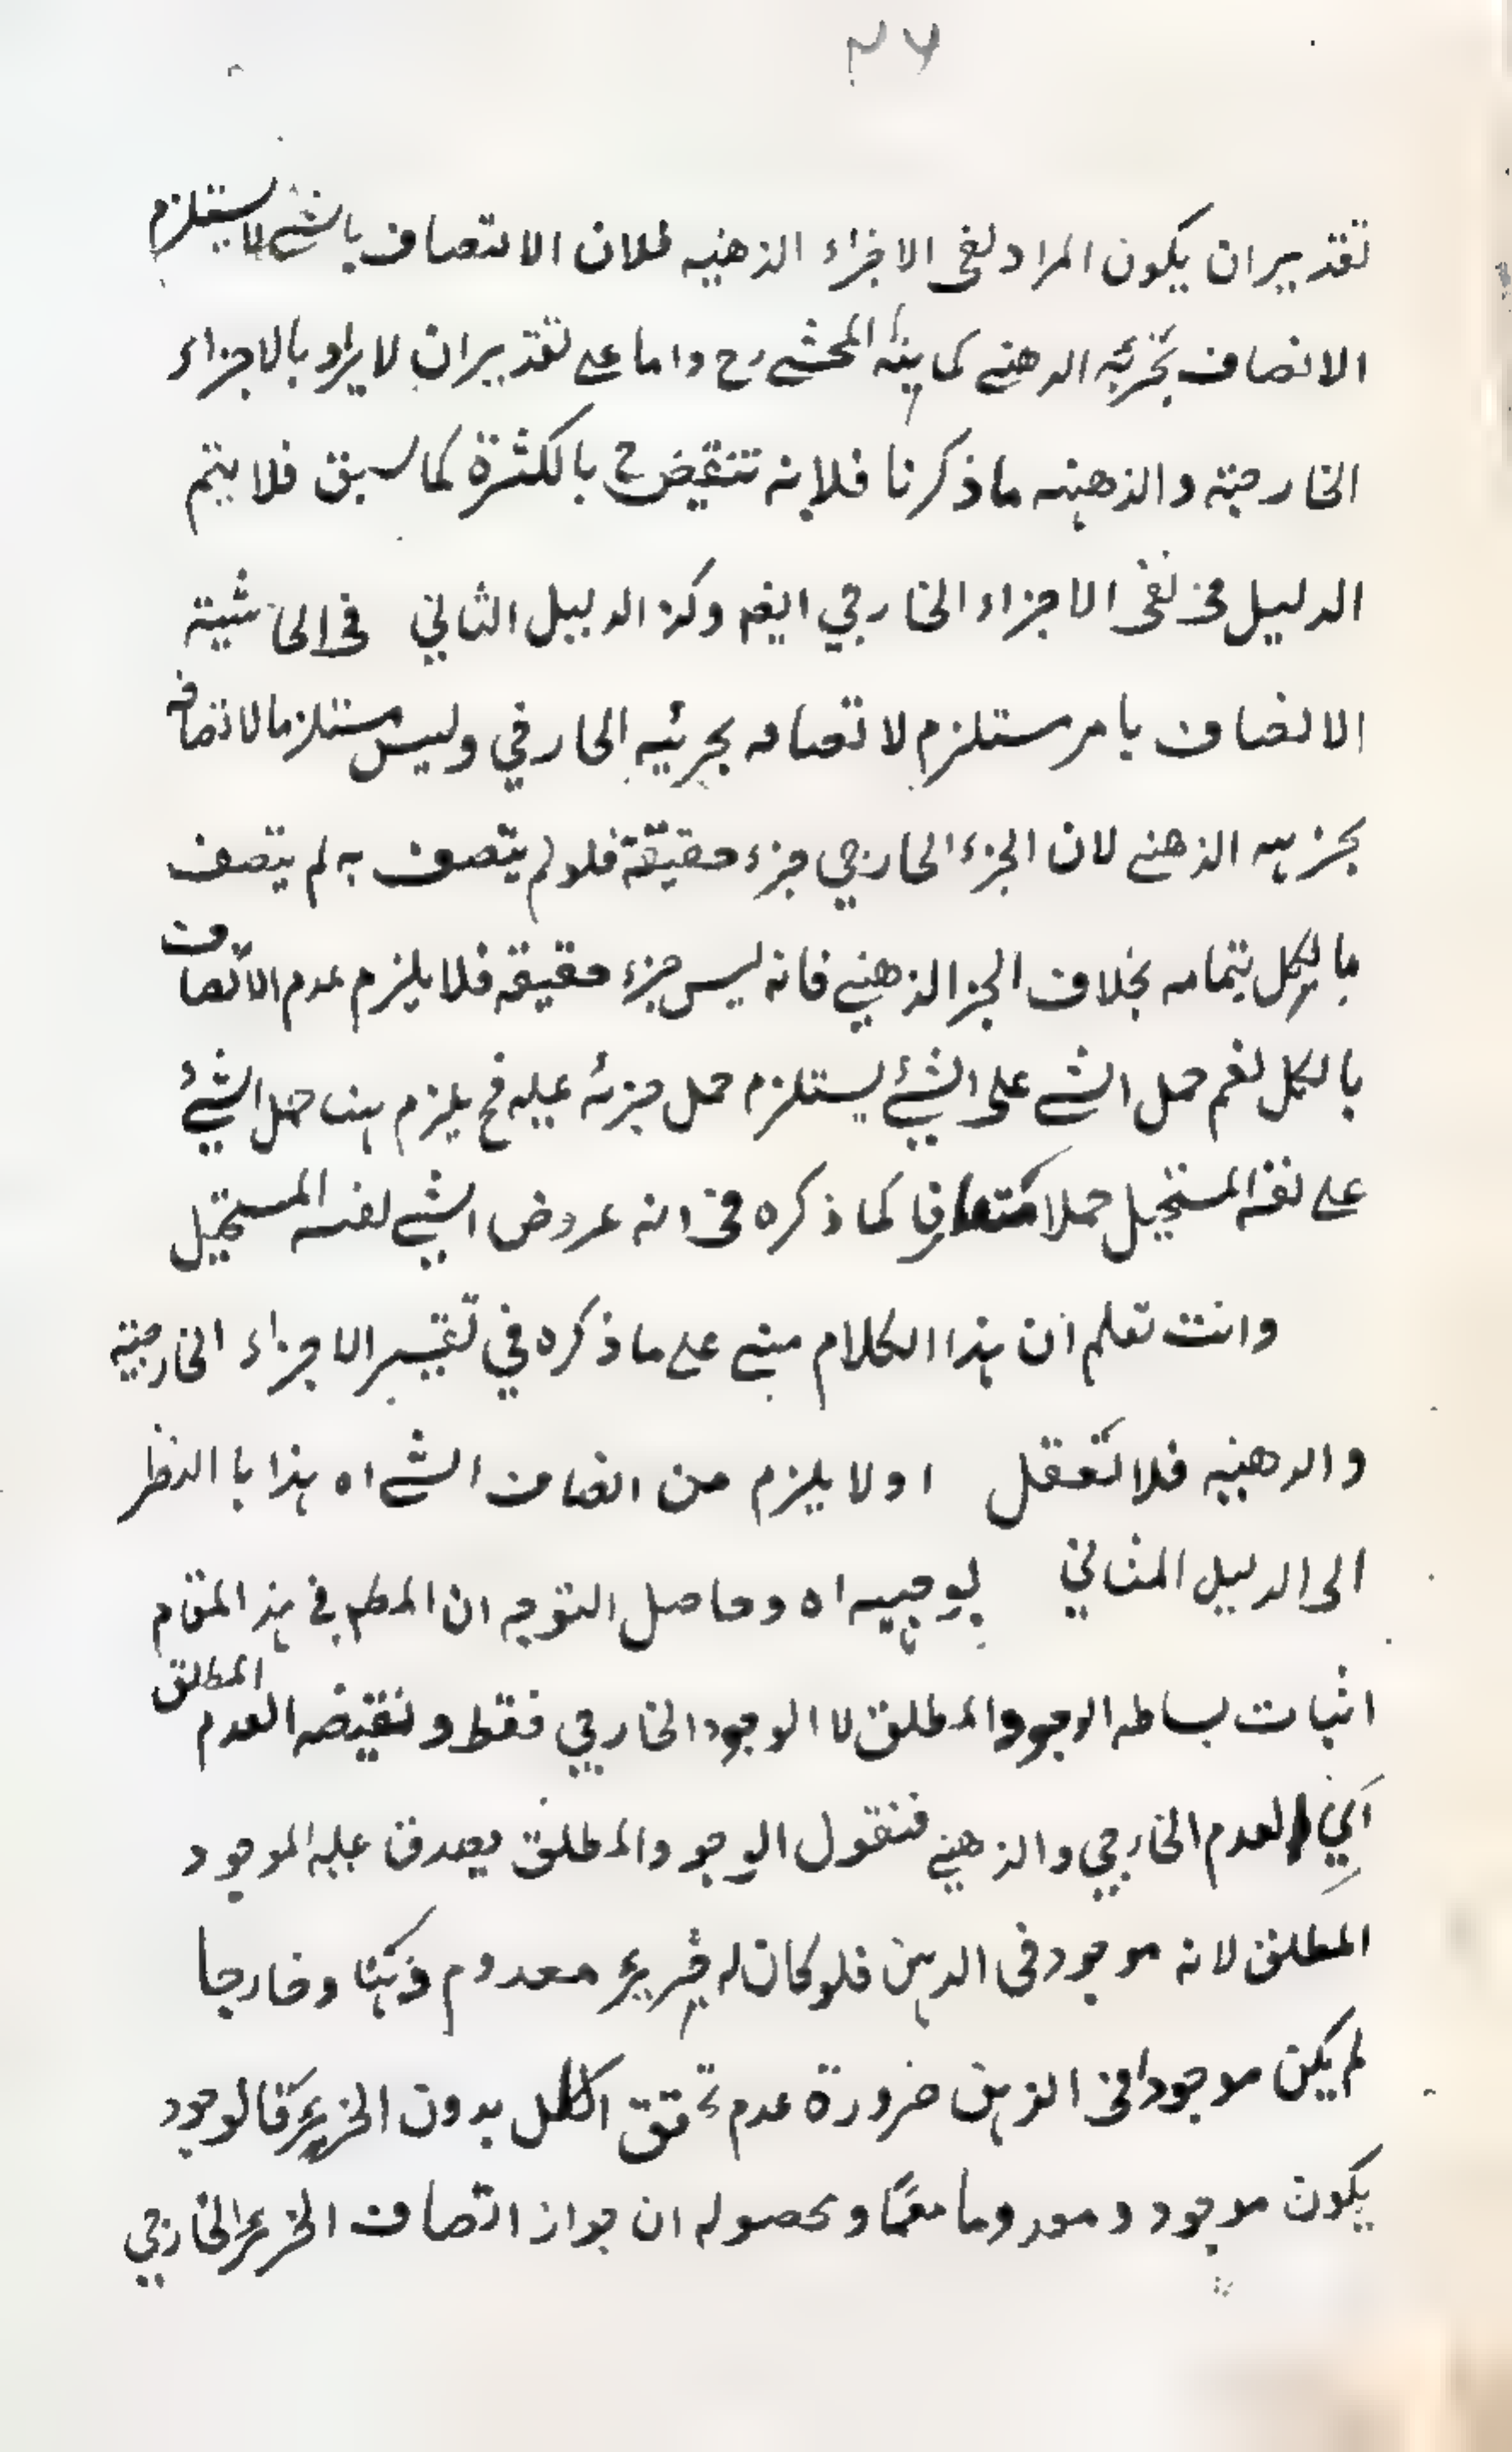 ٣٦
تقدير ان يكون المراد نفى الاجزاء الذهنيه فلان الاتصاف بالشے لا يستلزم
الاتصاف بجزئه الذهنے كما بينه المحشے رح واما علے تقدير ان لا يراد بالاجزاء
الخارجية والذهنيه ما ذكرنا فلانه تنتقيض ح بالكثرة كما سبق فلا يتم
الدليل فى نفى الاجزاء الخارجي ايضه وكذ الدليل الثاني فى الحاشية
الاتصاف بامر مستلزم لاتصافه بجزئيه الخارجي وليس مستلزما لاتصافه
بجزئيه الذهنے لان الجزء الخارجي جزء حقيقة فلو لم يتصف به لم يتصف
بالكل بتمامه بخلاف الجز الذهنے فانه ليس جزء حقيقه فلا يلزم عدم الاتصاف
بالكل نعم حمل الشے على الشئے يستلزم حمل جزئه عليه فح يلزم ہهنا حمل الشئے
علے نفسه المستحيل حملا متعارفا كما ذكره فى انه عروض الشے لنفسه المستحيل
وانت تعلم ان ہذا الكلام مبنے علے ما ذكره في تفسير الاجزاء الخارجية
والذهنيه فلا تعقل او لا يلزم من اتصاف الشے اه ہذا با النظر
الى الدليل الثاني توجيه اه وحاصل التوجه ان المطم في ہذ المقام
اثبات بساطه الوجود المطلق لا الوجود الخارجي فقط ونقيضه العدم المطلق
اي العدم الخارجي والذهنے فنقول الوجود المطلق يصدق عليه الموجود
المطلق لانه موجود فى الذہن فلو كان له جزء معدوم ذہنا وخارجا
لم يكن موجودا فى الذہن ضرورة عدم تحقق الكل بدون الجزء فالوجود
يكون موجود ومعدوما معًا ومحصوله ان جواز اتصاف الجزء الخارجي